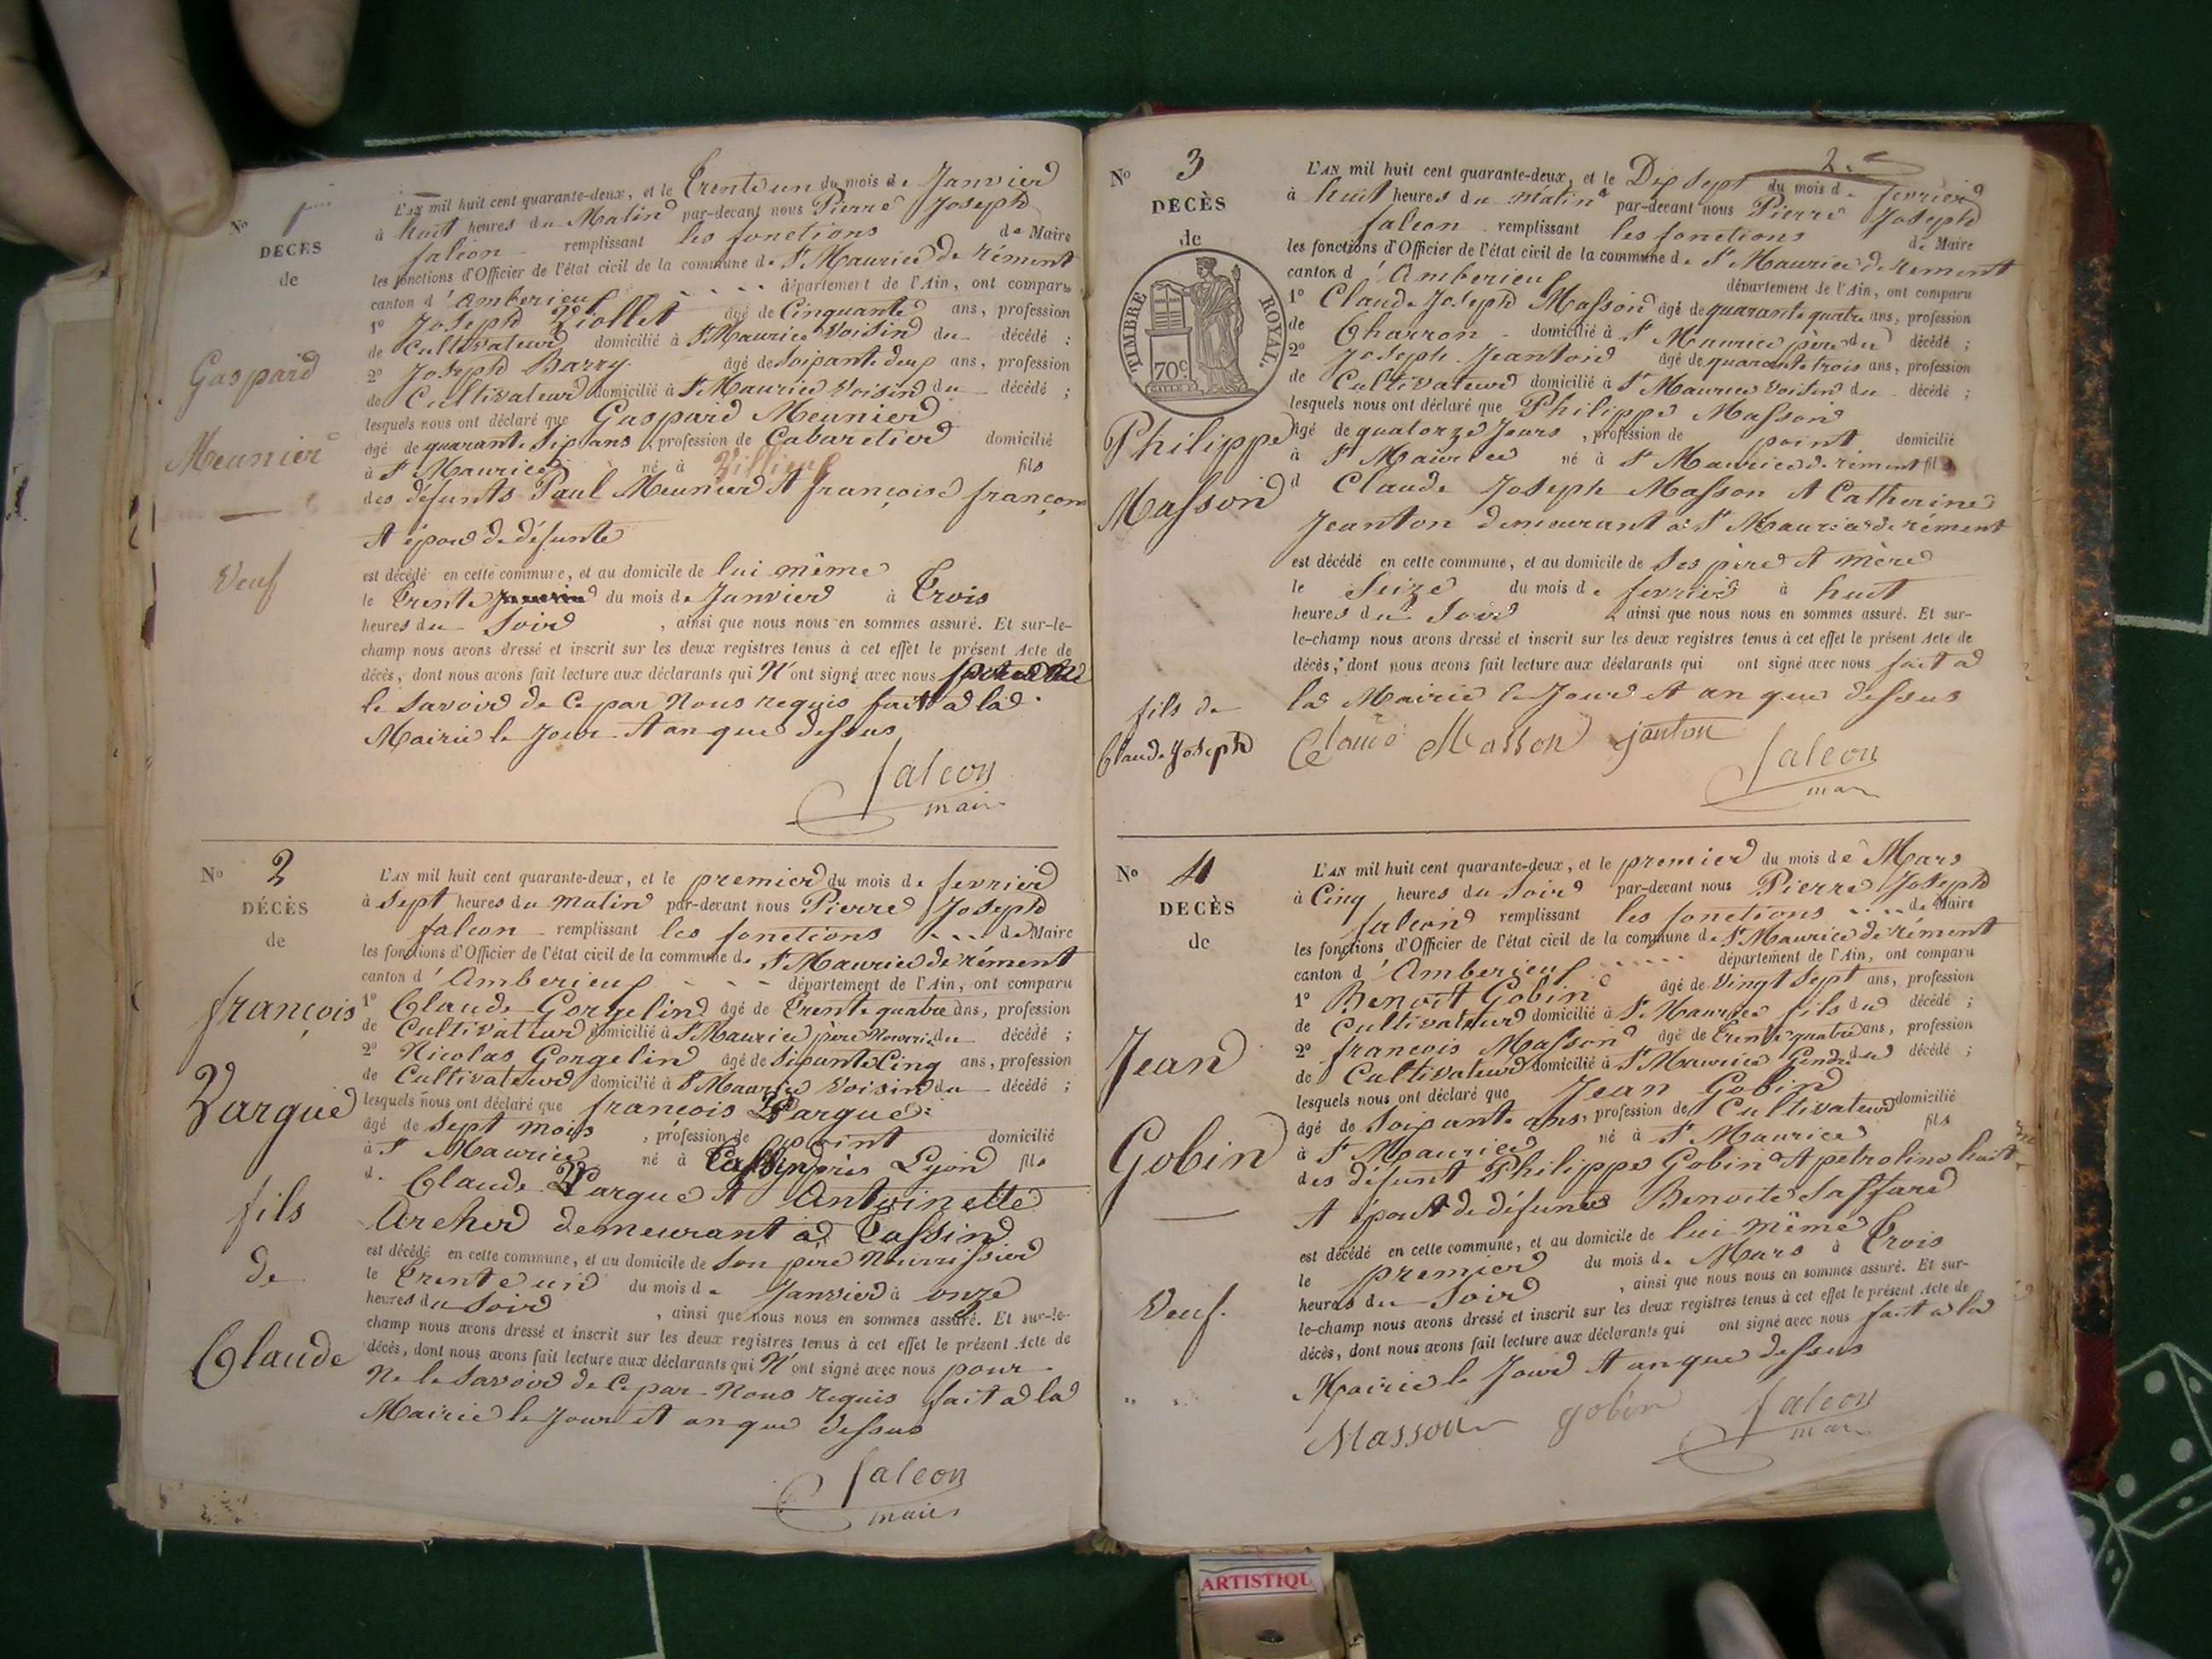 No 1
DÉCÈS
de
Gaspard
Meunier
Veuf
L'AN mil huit cent quarante-deux, et le Trente un du mois de Janvier
à huit heures du Matin par-devant nous Pierre Joseph
falcon remplissant les fonctions de Maire
les fonctions d'Officier de l'état civil de la commune de St Maurice de rément
canton d'Amberieux département de l'Ain, ont comparu
1o Joseph Viollet âgé de Cinquante ans, profession
de Cultivateur domicilié à St Maurice Voisin du décédé ;
2o Joseph Barry âgé de Soixante deux ans, profession
de Cultivateur domicilié à St Maurice Voisin du décédé ;
lesquels nous ont déclaré que Gaspard Meunier
âgé de quarante Six ans, profession de Cabaretier domicilié
à St Maurice né à Villieux fils
des défunts Paul Meunier et françoise françon
et époux de défunte
est décédé en cette commune, et au domicile de lui même
le Trente du mois de Janvier à Trois
heures du Soir, ainsi que nous nous en sommes assuré. Et sur-le-
champ nous avons dressé et inscrit sur les deux registres tenus à cet effet le présent Acte de
décès, dont nous avons fait lecture aux déclarants qui N'ont signé avec nous
le Savoir de Ce par Nous requis fait a la
Mairie le Jour et an que dessus
falcon
maire
No 2
DÉCÈS
de
françois
Vargue
fils
de
Claude
L'AN mil huit cent quarante-deux, et le premier du mois de fevrier
à Sept heures du matin par-devant nous Pierre Joseph
falcon remplissant les fonctions de Maire
les fonctions d'Officier de l'état civil de la commune de St Maurice de rément
canton d'Amberieux département de l'Ain, ont comparu
1o Claude Gorgelin âgé de Trente quatre ans, profession
de Cultivateur domicilié à St Maurice père Nourri du décédé ;
2o Nicolas Gorgelin âgé de Sixante Cinq ans, profession
de Cultivateur domicilié à St Maurice Voisin du décédé ;
lesquels nous ont déclaré que françois Vargue
âgé de Sept mois, profession de point domicilié
à St Maurice né à Tassin près Lyon fils
de Claude Vargue et Antoinette
Archer demeurant à Tassin
est décédé en cette commune, et au domicile de Son père Nourrissier
le Trente un du mois de Janvier à onze
heures du Soir, ainsi que nous nous en sommes assuré. Et sur-le-
champ nous avons dressé et inscrit sur les deux registres tenus à cet effet le présent Acte de
décès, dont nous avons fait lecture aux déclarants qui N'ont signé avec nous pour
Ne le Savoir de Ce par Nous requis fait a la
Mairie le Jour et an que dessus
falcon
maire
2.e
No 3
DÉCÈS
de
TIMBRE ROYAL.
70c
Philippe
Masson
fils de
Claude Joseph
L'AN mil huit cent quarante-deux, et le Dix Sept du mois de fevrier
à huit heures du matin par-devant nous Pierre Joseph
falcon remplissant les fonctions de Maire
les fonctions d'Officier de l'état civil de la commune de St Maurice de rement
canton d'Amberieux département de l'Ain, ont comparu
1o Claude Joseph Masson âgé de quarante quatre ans, profession
de Charron domicilié à St Maurice père du décédé ;
2o Joseph Jeanton âgé de quarante trois ans, profession
de Cultivateur domicilié à St Maurice Voisin du décédé ;
lesquels nous ont déclaré que Philippe Masson
âgé de quatorze Jours, profession de point domicilié
à St Maurice né à St Maurice de rément fils
d Claude Joseph Masson et Catherine
Jeanton demeurant a St Maurice de rément
est décédé en cette commune, et au domicile de Ses père et mère
le Seize du mois de fevrier à huit
heures du Soir ainsi que nous nous en sommes assuré. Et sur-
le-champ nous avons dressé et inscrit sur les deux registres tenus à cet effet le présent Acte de
décès, dont nous avons fait lecture aux déclarants qui ont signé avec nous fait a
la Mairie le Jour et an que dessus
Claude Masson janton
falcon
mar
No 4
DÉCÈS
de
Jean
Gobin
Veuf.
L'AN mil huit cent quarante-deux, et le premier du mois de Mars
à Cinq heures du Soir par-devant nous Pierre Joseph
falcon remplissant les fonctions de Maire
les fonctions d'Officier de l'état civil de la commune de St Maurice de rément
canton d'Amberieux département de l'Ain, ont comparu
1o Benoit Gobin âgé de Vingt Sept ans, profession
de Cultivateur domicilié à St Maurice fils du décédé ;
2o francois Masson âgé de Trente quatre ans, profession
de Cultivateur domicilié à St Maurice Gendre du décédé ;
lesquels nous ont déclaré que Jean Gobin
âgé de Soixante ans, profession de Cultivateur domicilié
à St Maurice né à St Maurice fils
des défunt Philippe Gobin et petroline
et époux de défunte Benoite Saffard
est décédé en cette commune, et au domicile de lui même
le premier du mois de Mars à Trois
heures du Soir, ainsi que nous nous en sommes assuré. Et sur-
le-champ nous avons dressé et inscrit sur les deux registres tenus à cet effet le présent Acte de
décès, dont nous avons fait lecture aux déclarants qui ont signé avec nous fait a la
Mairie le Jour et an que dessus
Masson gobin
falcon
mar
ARTISTIQU